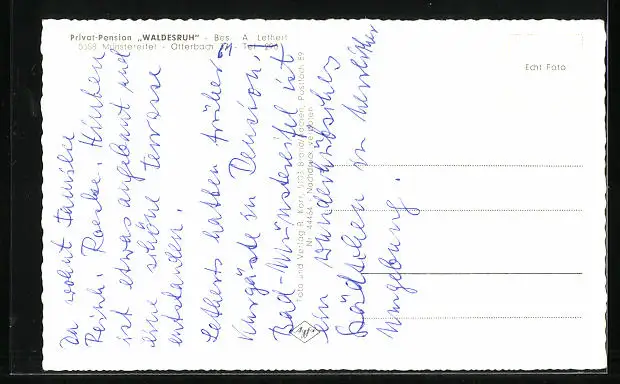 Privat-Pension „WALDESRUH" - Bes. A. Lethert
5358 Münstereifel - Otterbach - Tel. 290
Echt Foto
Foto und Verlag R. Korr, 5103 Brand/Aachen, Postfach 59
Nr. 44464 - Nachdruck verboten
Agfa
Da wohnt Familie
Reinh. Raske. Hinten
ist etwas angebaut und
eine schöne Terrasse
entstanden.
Letherts hatten früher
Kurgäste in Pension.
Bad-Münstereifel ist
ein wunderhübsches
Städtchen in herrlicher
Umgebung.